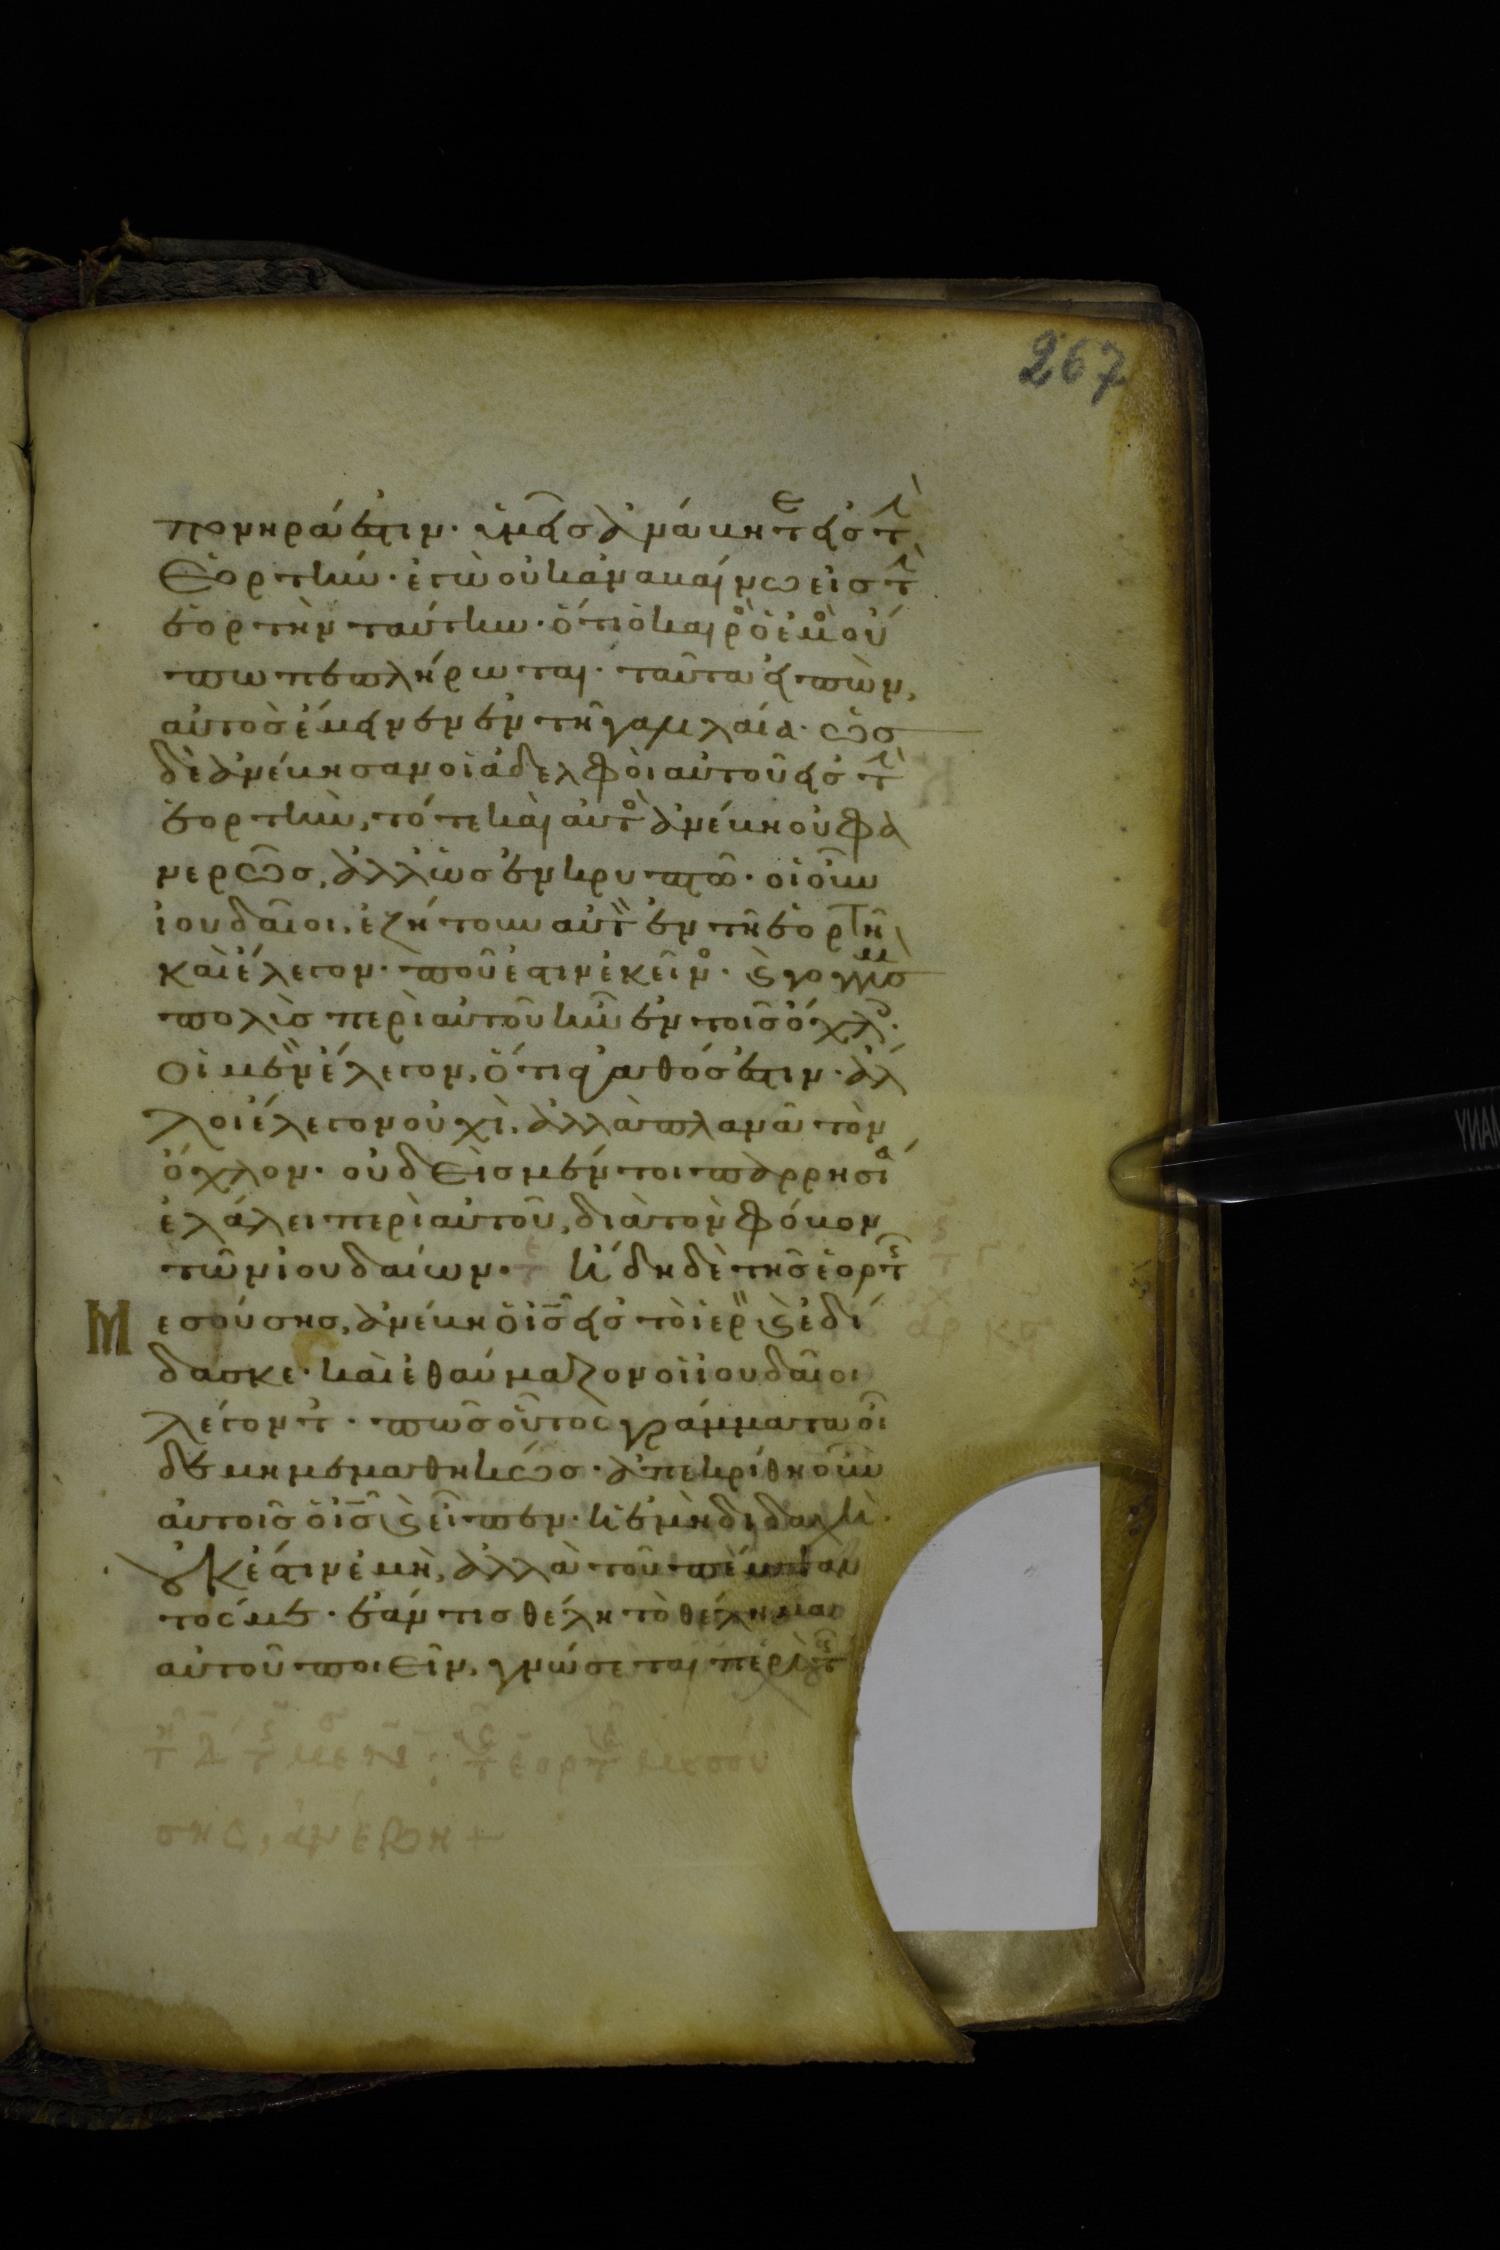 267
πονηρά ἐστιν· ὑμεῖς ἀνάβητε εἰς τὴν
ἑορτήν· ἐγὼ οὐκ ἀναβαίνω εἰς τὴν
ἑορτὴν ταύτην· ὅτι ὁ καιρὸς ὁ ἐμὸς οὔ
πω πεπλήρωται· ταῦτα εἰπὼν,
αὐτὸς ἔμεινεν ἐν τῆ γαλιλαία· ὡς
δὲ ἀνέβησαν οἱ ἀδελφοὶ αὐτοῦ εἰς τὴν
ἑορτὴν, τότε καὶ αὐτὸς ἀνέβη οὐ φα
νερῶς, ἀλλ' ὡς ἐν κρυπτῶ· οἱ οὖν
ἰουδαῖοι, ἐζήτουν αὐτὸν ἐν τῆ ἑορτῆ
καὶ ἔλεγον· ποῦ ἐστιν ἐκεῖνος· καὶ γογγυσμὸς
πολὺς περὶ αὐτοῦ ἦν ἐν τοῖς ὄχλοις·
οἱ μὲν ἔλεγον, ὅτι ἀγαθός ἐστιν· ἀλ
λοι ἔλεγον οὐχὶ, ἀλλὰ πλανᾶ τὸν
ὄχλον· οὐδεὶς μέντοι παρρησία
ἐλάλει περὶ αὐτοῦ, διὰ τὸν φόβον
τῶν ἰουδαίων· ἤδη δὲ τῆς ἑορτῆς
Μεσούσης, ἀνέβη ὁ ις εἰς τὸ ἱερὸν καὶ ἐδί
δασκε· καὶ ἐθαύμαζον οἱ ἰουδαῖοι
λέγοντες· πῶς οὗτος γράμματα οἶ
δε μὴ μεμαθηκώς· ἀπεκρίθη οὖν
αὐτοῖς ὁ ις καὶ εἶπεν· ἡ ἐμὴ διδαχὴ
οὐκ ἔστιν ἐμὴ, ἀλλὰ τοῦ πέμψαν
τός με· ἐάν τις θέλη τὸ θέλημα
αὐτοῦ ποιεῖν, γνώσεται περὶ τῆς
τῆς ἑορτῆς μεσού
σης, ἀνέβη +